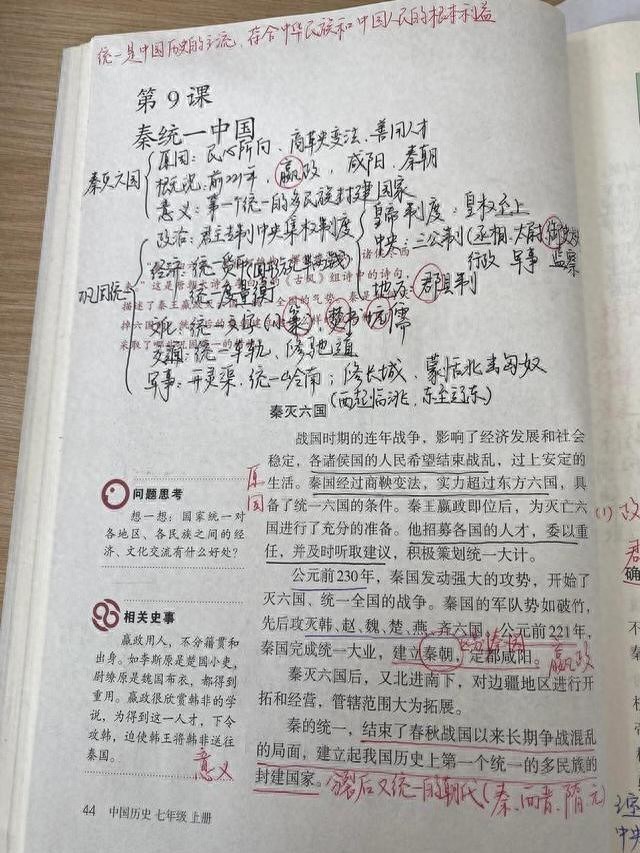 统一是中国历史的主流,符合中华民族和中国人民的根本利益
第9课
秦统一中国
秦灭六国
原因:民心所向、商鞅变法、善用人才
概况:前221年,嬴政,咸阳、秦朝
意义:第一个统一的多民族封建国家
巩固统一
政治:君主专制中央集权制度
皇帝制度:皇权至上
中央:三公制(丞相、太尉、御史大夫
行政 军事 监察
地方:郡县制
经济:统一货币(圆形方孔半两钱)
统一度量衡
文化:统一文字(小篆),焚书坑儒
交通:统一车轨、修驰道
军事:开灵渠、统一岭南;修长城、蒙恬北击匈奴
(西起临洮,东至辽东)
诸侯尽西
”这是唐朝大诗人李白的《古风》组诗中的诗句,
秦灭六国
战国时期的连年战争,影响了经济发展和社会
稳定,各诸侯国的人民希望结束战乱,过上安定的
生活。秦国经过商鞅变法,实力超过东方六国,具
备了统一六国的条件。秦王嬴政即位后,为灭亡六
国进行了充分的准备。他招募各国的人才,委以重
任,并及时听取建议,积极策划统一大计。
原因
公元前230年,秦国发动强大的攻势,开始了
灭六国、统一全国的战争。秦国的军队势如破竹,
先后攻灭韩、赵、魏、楚、燕、齐六国。公元前221年,
秦国完成统一大业,建立秦朝,定都咸阳。嬴政
秦灭六国后,又北进南下,对边疆地区进行开
拓和经营,管辖范围大为拓展。
秦的统一,结束了春秋战国以来长期争战混乱
的局面,建立起我国历史上第一个统一的多民族的
封建国家。分裂后又统一的朝代(秦、西晋、隋、元
意义
问题思考
想一想:国家统一对
各地区、各民族之间的经
济、文化交流有什么好处?
相关史事
嬴政用人,不分籍贯和
出身。如李斯原是楚国小吏,
尉缭原是魏国布衣,都得到
重用。嬴政很欣赏韩非的学
说,为得到这一人才,下令
攻韩,迫使韩王将韩非送往
秦国。
44 中国历史 七年级 上册
(1)政
君
确
中央